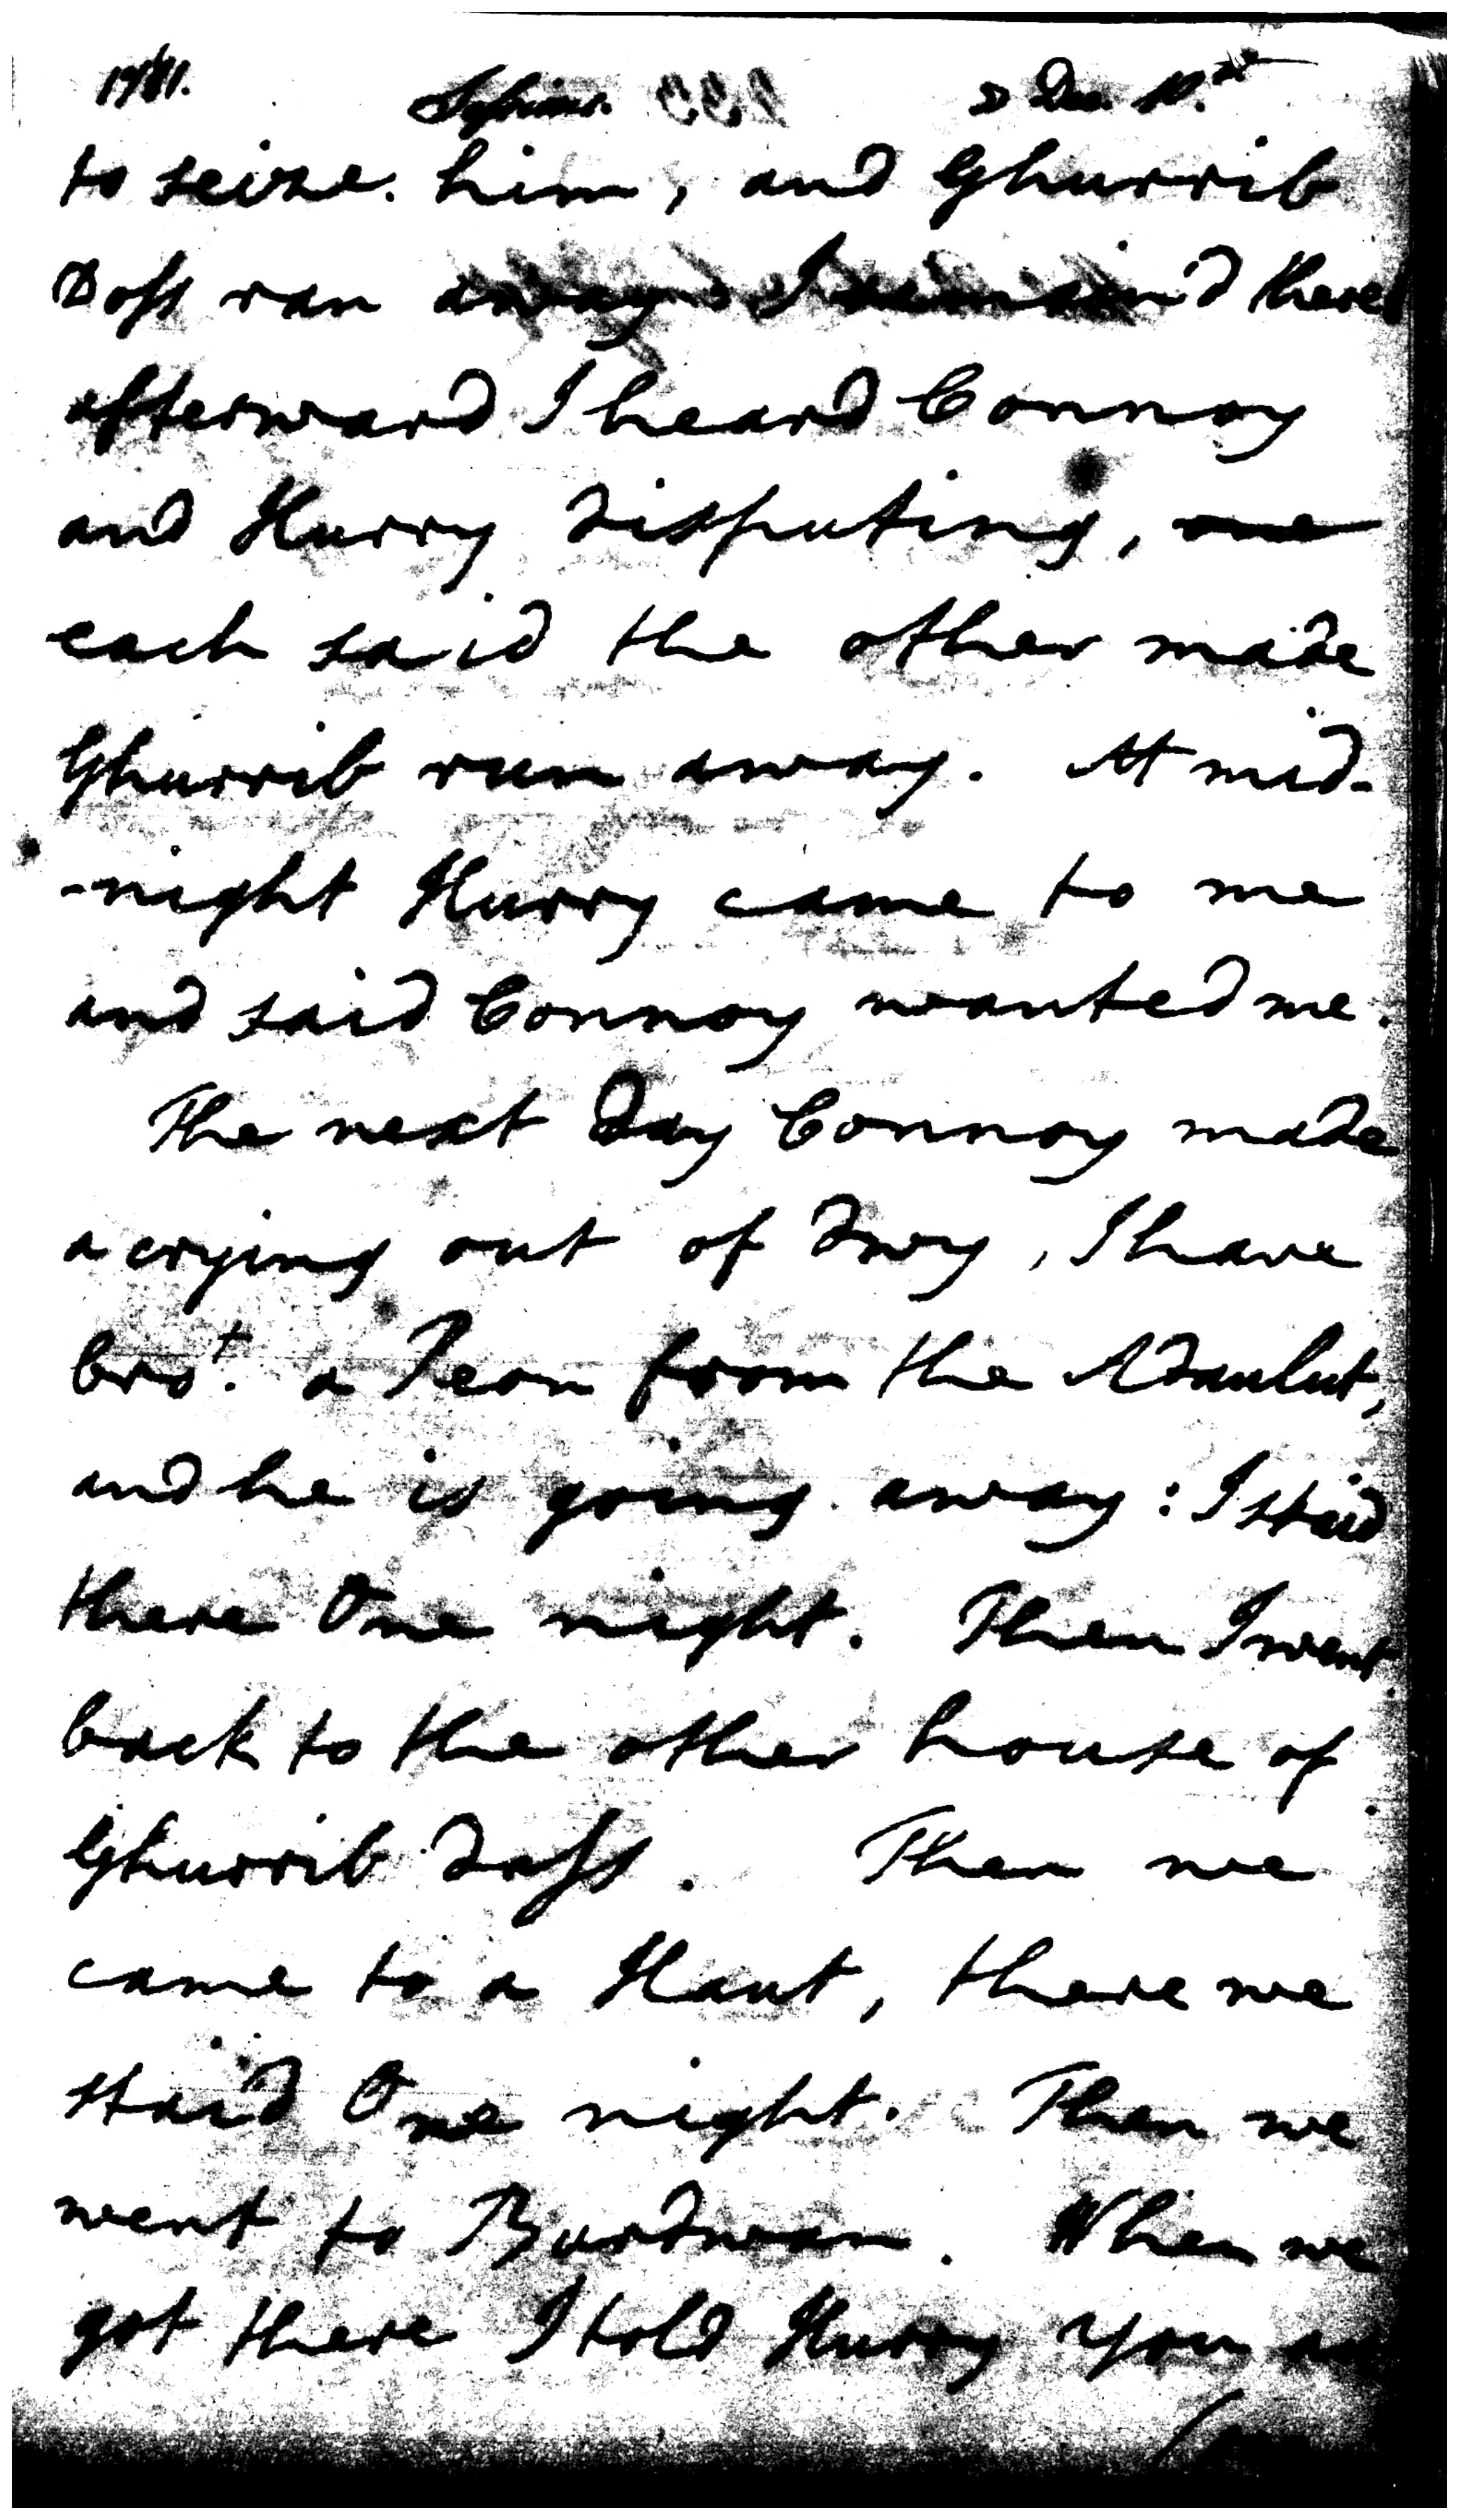 to seize him, and Ghurrib
Doss ran away. I remain'd there
afterward I heard Connoy
and Hurry disputing,
each said the other made
Ghurrib run away. At mid-
-night Hurry came to me
and said Connoy wanted me.
The next Day Connoy made
a crying out of Dwy, I have
bro.t a Peon from the Adaulut,
and he is going away: I staid
there One night. Then I went
back to the other house of
Ghurrib Dass. Then we
came to a Haut, there we
staid One night. Then we
went to Burdwan. When we
got there I told Hurry you